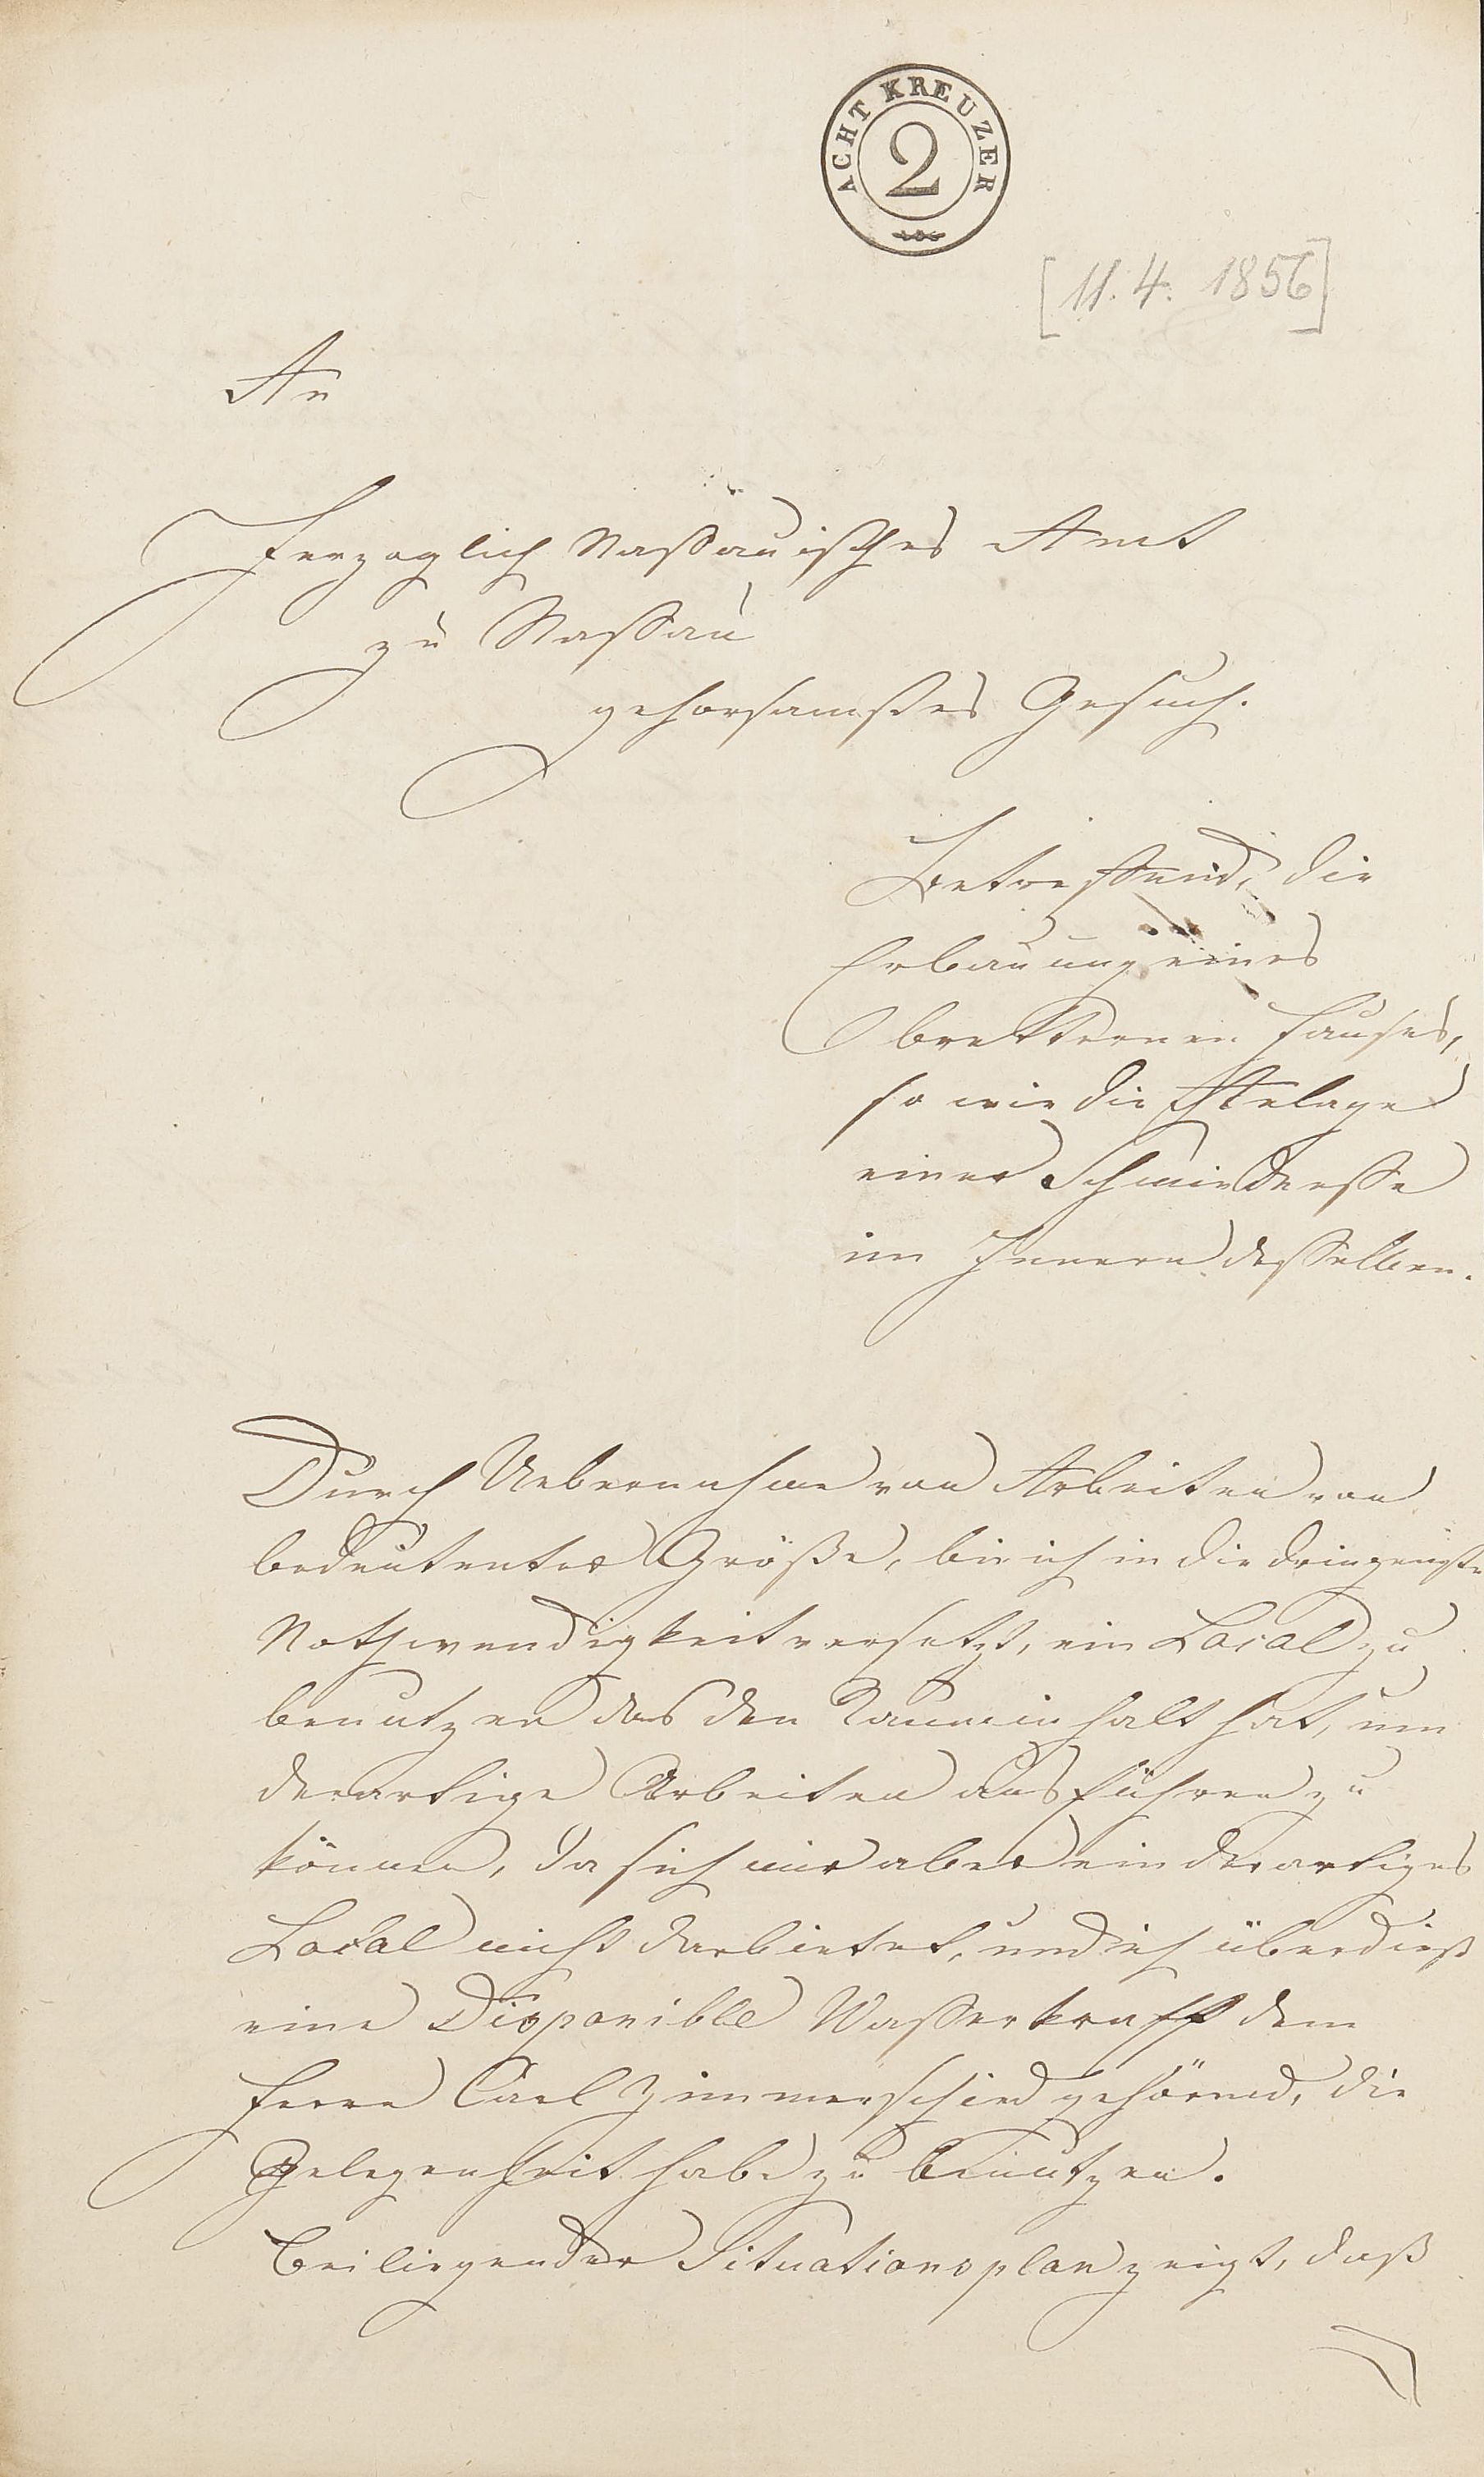 ACHT KREUZER
2
[11. 4. 1856]
An
Herzoglich Nassauisches Amt
zu Nassau
gehorsamstes Gesuch.
Betreffend, die
Erbauung eines
bretternen Hauses,
so wie die Anlage
einer Schmiedesse
im Innern desselben.
Durch Uebernahme von Arbeiten von
bedeutenter Größe, bin ich in die dringenste
Nothwendigkeit versetzt, ein Local zu
benutzen das den Rauminhalt hat, um
derartige Arbeiten ausführen zu
können, da sich mir aber ein derartiges
Local nicht darbietet, und ich überdieß
eine Disponible Wasserkraft dem
Herrn Carl Zimmerschied gehörend, die
Gelegenheit habe zu benutzen.
Beiliegender Situationsplan zeigt, daß